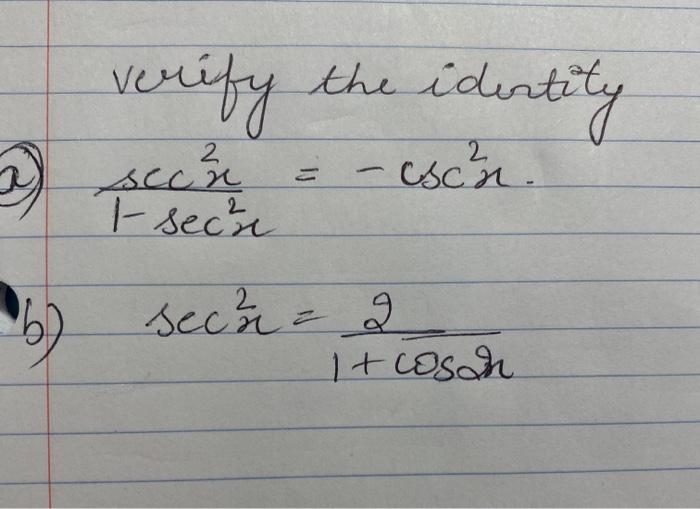 verify the identity
a) sec²x / 1 - sec²x = - csc²x.
b) sec²x = 2 / 1 + cos2x